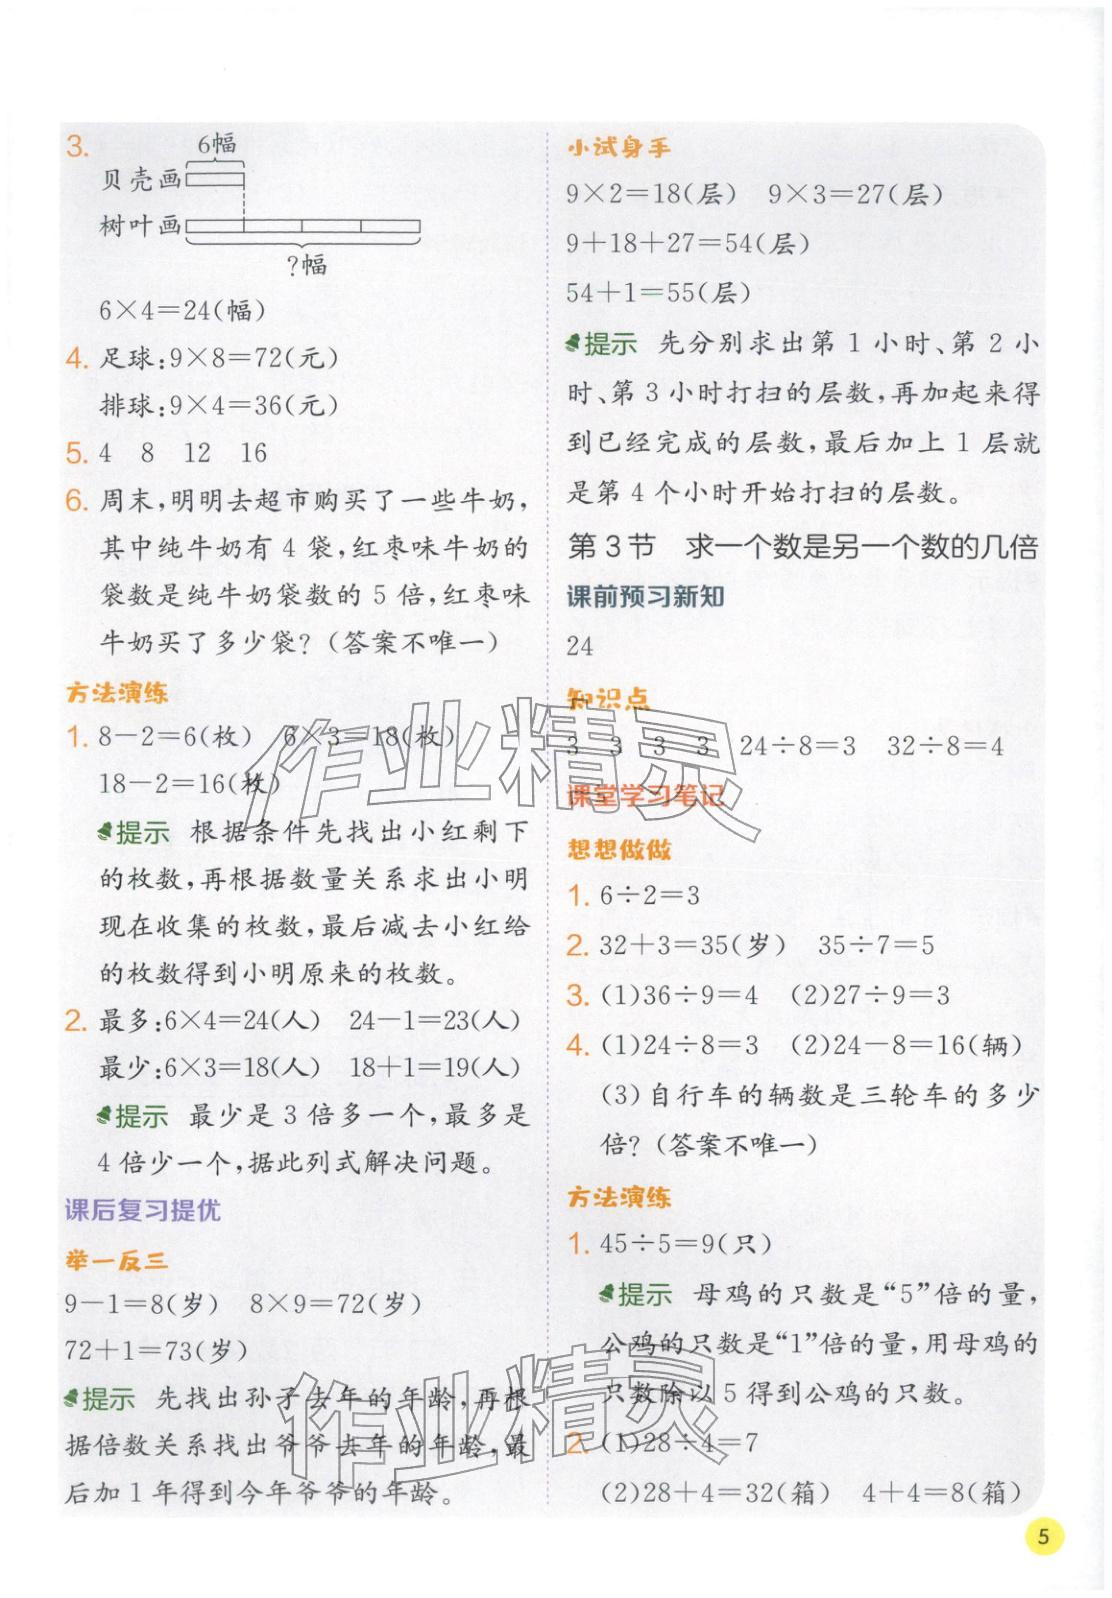 3.
6幅
贝壳画
树叶画
?幅
6×4=24(幅)
4. 足球:9×8=72(元)
排球:9×4=36(元)
5. 4 8 12 16
6. 周末,明明去超市购买了一些牛奶,
其中纯牛奶有 4 袋,红枣味牛奶的
袋数是纯牛奶袋数的 5 倍,红枣味
牛奶买了多少袋?(答案不唯一)
方法演练
1. 8-2=6(枚) 6×3=18(枚)
18-2=16(枚)
提示 根据条件先找出小红剩下
的枚数,再根据数量关系求出小明
现在收集的枚数,最后减去小红给
的枚数得到小明原来的枚数。
2. 最多:6×4=24(人) 24-1=23(人)
最少:6×3=18(人) 18+1=19(人)
提示 最少是 3 倍多一个,最多是
4 倍少一个,据此列式解决问题。
课后复习提优
举一反三
9-1=8(岁) 8×9=72(岁)
72+1=73(岁)
提示 先找出孙子去年的年龄,再根
据倍数关系找出爷爷去年的年龄,最
后加 1 年得到今年爷爷的年龄。
小试身手
9×2=18(层) 9×3=27(层)
9+18+27=54(层)
54+1=55(层)
提示 先分别求出第 1 小时、第 2 小
时、第 3 小时打扫的层数,再加起来得
到已经完成的层数,最后加上 1 层就
是第 4 个小时开始打扫的层数。
第 3 节 求一个数是另一个数的几倍
课前预习新知
24
知识点
3 3 3 3 24÷8=3 32÷8=4
课堂学习笔记
想想做做
1. 6÷2=3
2. 32+3=35(岁) 35÷7=5
3. (1)36÷9=4 (2)27÷9=3
4. (1)24÷8=3 (2)24-8=16(辆)
(3)自行车的辆数是三轮车的多少
倍?(答案不唯一)
方法演练
1. 45÷5=9(只)
提示 母鸡的只数是“5”倍的量,
公鸡的只数是“1”倍的量,用母鸡的
只数除以 5 得到公鸡的只数。
2. (1)28÷4=7
(2)28+4=32(箱) 4+4=8(箱)
作业精灵
作业精灵
5